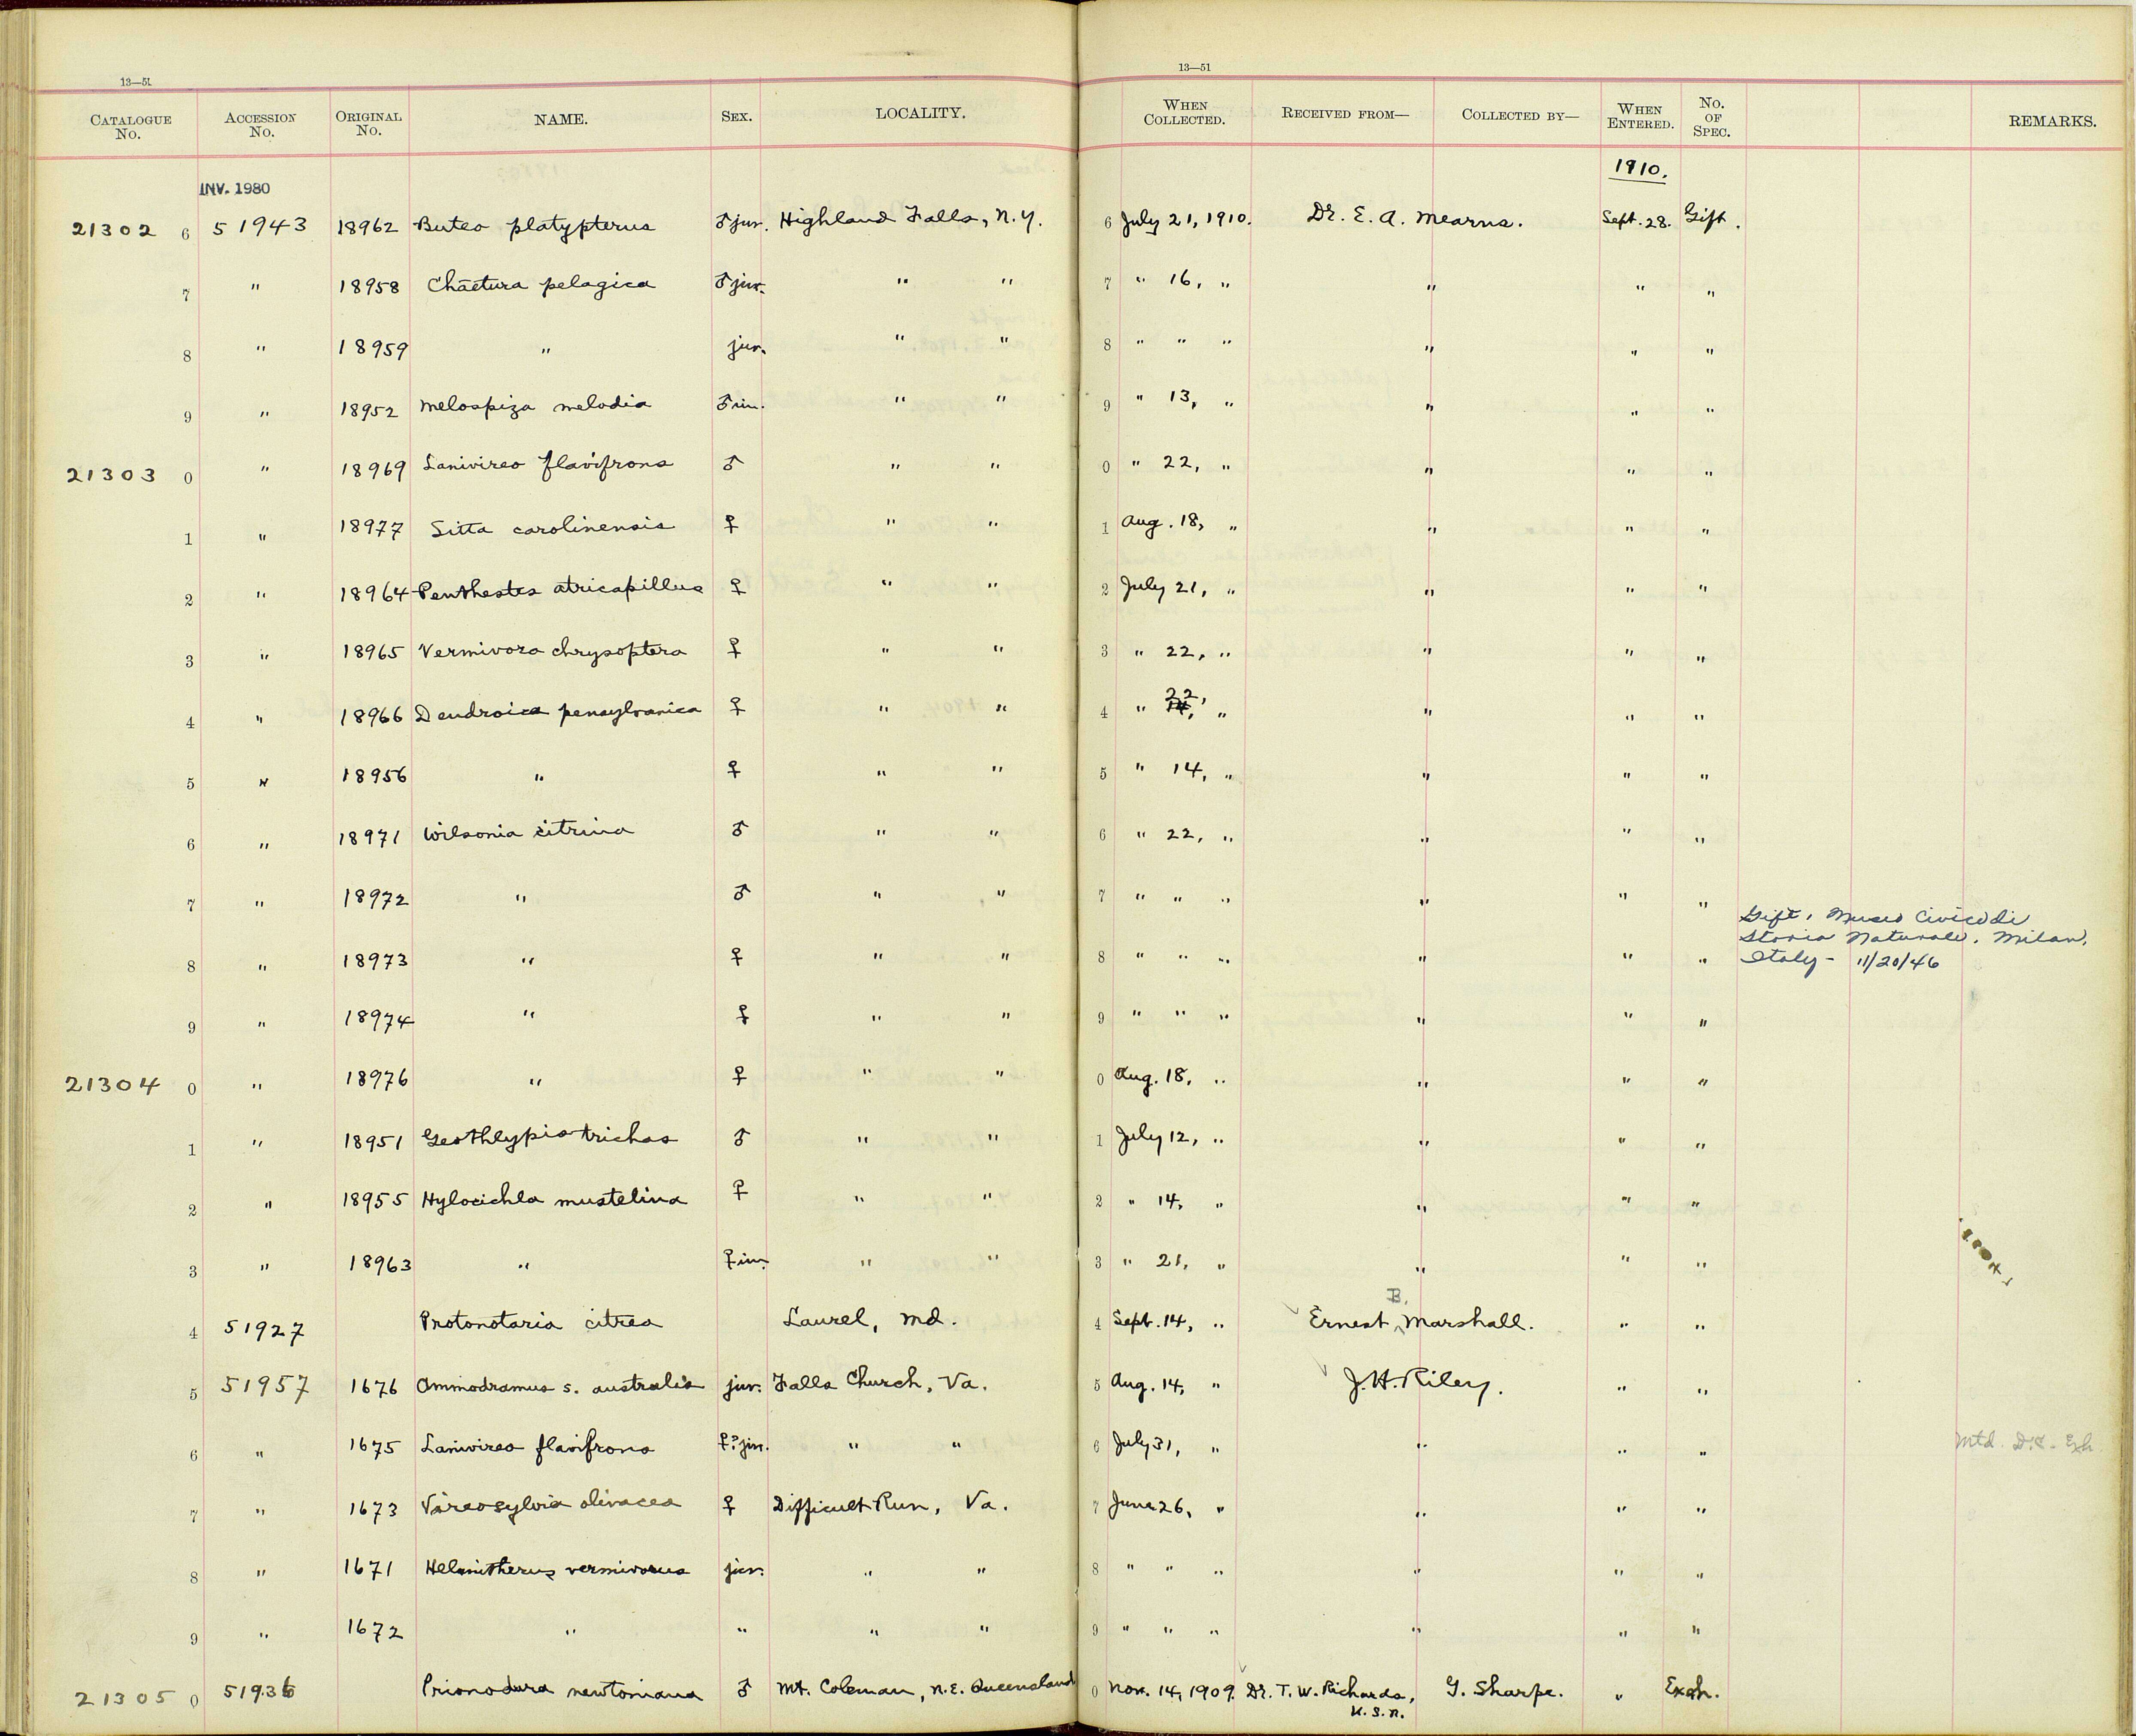 13—51
13—51
CATALOGUE No. ACCESSION No. ORIGINAL No. NAME. SEX. LOCALITY. WHEN COLLECTED. RECEIVED FROM— COLLECTED BY— WHEN ENTERED. No. OF SPEC. REMARKS.
1910.
INV. 1980
21302 6 51943 18962 Buteo platypterus ♂ juv. Highland Falls, N.Y. 6 July 21, 1910. Dr. E. A. Mearns. Sept. 28. Gift.
7 " 18958 Chaetura pelagica ♂ juv. " " 7 " 16, " " " "
8 " 18959 " juv. " " 8 " " " " " "
9 " 18952 Melospiza melodia ♂ im. " " 9 " 13, " " " "
21303 0 " 18969 Lanivireo flavifrons ♂ " " 0 " 22, " " " "
1 " 18977 Sitta carolinensis ♀ " " 1 Aug. 18, " " " "
2 " 18964 Penthestes atricapillus ♀ " " 2 July 21, " " " "
3 " 18965 Vermivora chrysoptera ♀ " " 3 " 22, " " " "
4 " 18966 Dendroica pensylvanica ♀ " " 4 " 22, " " " "
5 " 18956 " ♀ " " 5 " 14, " " " "
6 " 18971 Wilsonia citrina ♂ " " 6 " 22, " " " "
7 " 18972 " ♂ " " 7 " " " " " "
Gift, Museo Civico di
Storia Naturale, Milan,
8 " 18973 " ♀ " " 8 " " " " " " Italy - 11/20/46
9 " 18974 " ♀ " " 9 " " " " " "
21304 0 " 18976 " ♀ " " 0 Aug. 18, " " " "
1 " 18951 Geothlypis trichas ♂ " " 1 July 12, " " " "
2 " 18955 Hylocichla mustelina ♀ " " 2 " 14, " " " "
3 " 18963 " ♀ im. " " 3 " 21, " " " "
4 51927 Protonotaria citrea Laurel, Md. 4 Sept. 14, " Ernest B. Marshall. " "
5 51957 1676 Ammodramus s. australis juv. Falls Church, Va. 5 Aug. 14, " J. H. Riley. " "
6 " 1675 Lanivireo flavifrons ♀? juv. " " 6 July 31, " " " " Mtd. D.C. Exh.
7 " 1673 Vireosylvia olivacea ♀ Difficult Run, Va. 7 June 26, " " " "
8 " 1671 Helmitherus vermivorus juv. " " 8 " " " " " "
9 " 1672 " " " " 9 " " " " " "
21305 0 51936 Prionodura newtoniana ♂ Mt. Coleman, N.E. Queensland 0 Nov. 14, 1909. Dr. T. W. Richards, G. Sharpe. " Exch.
U.S.N.